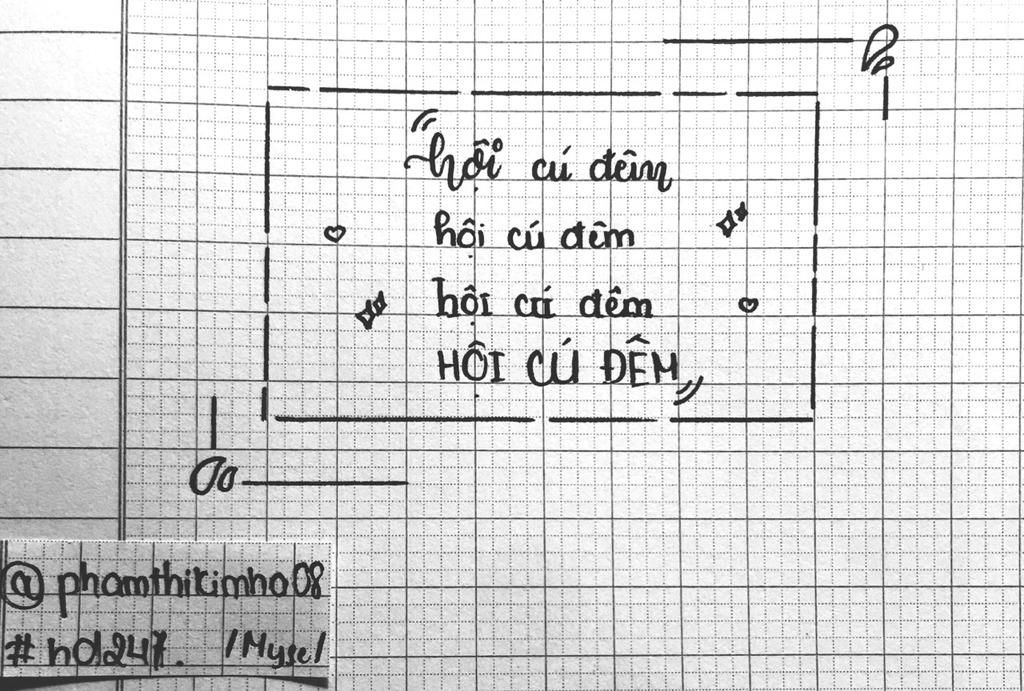 hội cú đêm
hội cú đêm
hội cú đêm
HỘI CÚ ĐÊM
@phamthikimho08
#hd247. /Myse/